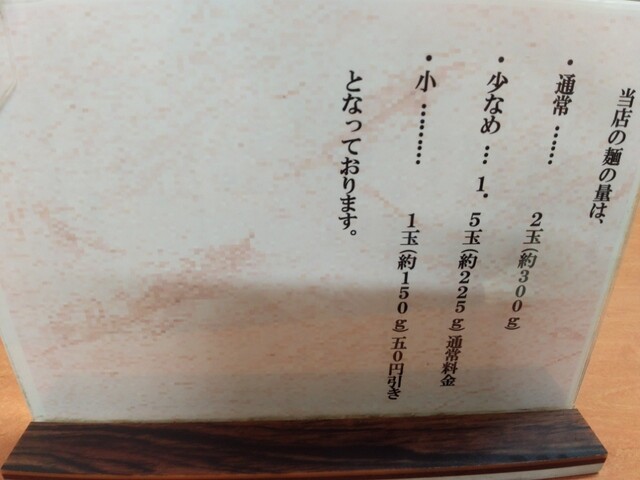 当店の麺の量は、
・通常…… 2玉(約300g)
・少なめ… 1.5玉(約225g)通常料金
・小……… 1玉(約150g)五0円引き
となっております。